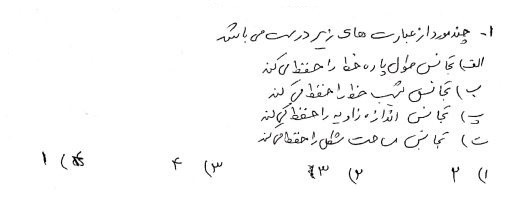 ۱- چند مورد از عبارت های زیر درست می باشد
الف) تجانس طول پاره خط را حفظ می کند
ب) تجانس شیب خط را حفظ می کند
پ) تجانس اندازه زاویه را حفظ می کند
ت) تجانس مساحت شکل را حفظ می کند
۱) ۲ ۲) ۳ ۳) ۴ ۴) ۱